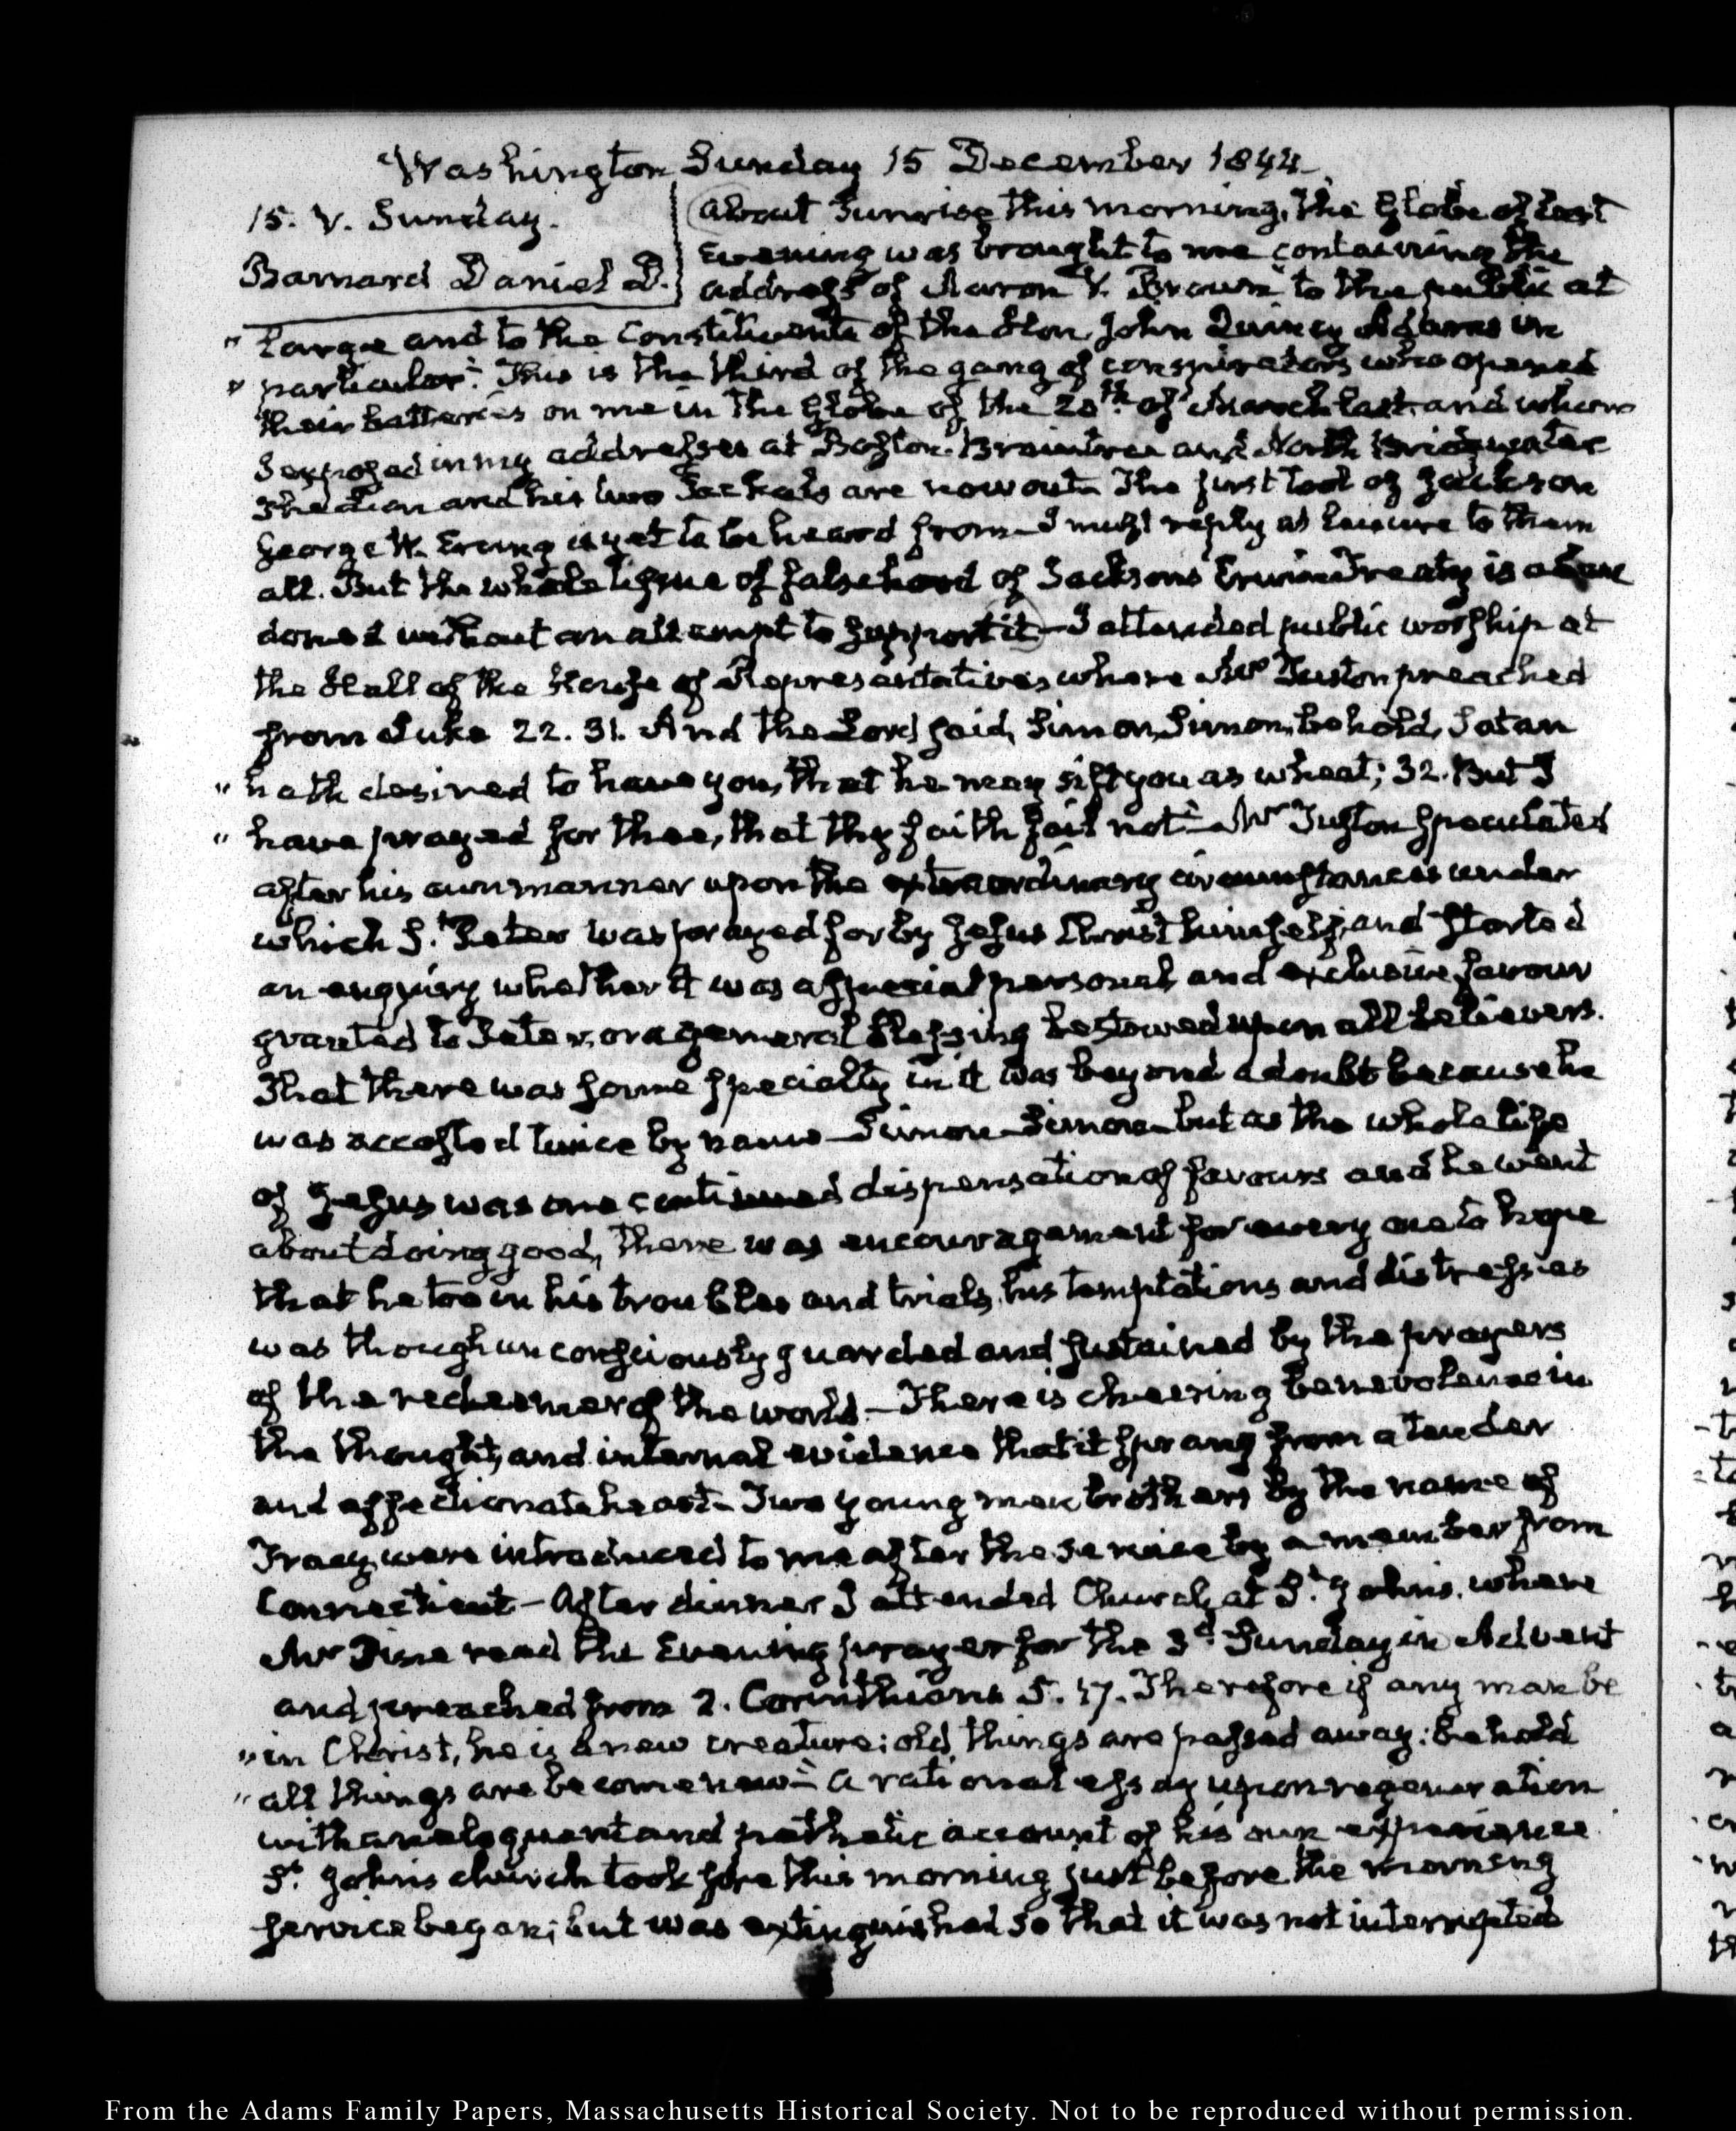 Washington Sunday 15 December 1844.
15. V. Sunday.
Barnard Daniel D.
About Sunrise this morning, the Globe of last
Evening was brought to me containing the
address of Aaron V. Brown "to the public at
" large and to the Constituents of the Hon. John Quincy Adams in
" particular." This is the third of the gang of conspirators who opened
their batteries on me in the Globe of the 20th. of March last and whom
I exposed in my addresses at Boston. Braintree and North Bridgewater
The Lion and his two Jackals are now out. The first tool of Jackson
George W. Erving is yet to be heard from—I must reply at leisure to them
all. But the whole tissue of falsehood of Jacksons Erving Treaty is aban
doned without an attempt to support it—I attended public worship at
the Hall of the House of Representatives where Mr Tuston preached
from Luke 22. 31. And the Lord said, Simon, Simon, behold, Satan
" hath desired to have you, that he may sift you as wheat; 32. But I
" have prayed for thee, that thy faith fail not"—Mr Tuston speculated
after his own manner upon the extraordinary circumstances under
which St. Peter was prayed for by Jesus Christ himself, and started
an enquiry whether it was a special personal and exclusive favour
granted to Peter, or a general blessing bestowed upon all believers.
That there was some specialty in it was beyond a doubt because he
was accosted twice by name—Simon—Simon—but as the whole life
of Jesus was one continued dispensation of favours and he went
about doing good, there was encouragement for every one to hope
that he too in his troubles and trials, his temptations and distresses
was though unconsciously guarded and sustained by the prayers
of the redeemer of the world.—There is cheering benevolence in
the thought, and internal evidence that it sprang from a tender
and affectionate heart—Two young men brothers by the name of
Tracy, were introduced to me after the service by a member from
Connecticut—After dinner I attended Church at St. Johns. where
Mr Pine read the Evening prayer for the 3d. Sunday in Advent
and preached from 2. Corinthians 5. 17. Therefore if any man be
" in Christ, he is a new creature; old things are passed away: behold
" all things are become new"—a rational essay upon regeneration
with an eloquent and pathetic account of his own experience.
St. Johns church took fire this morning just before the morning
service began; but was extinguished so that it was not interrupted
From the Adams Family Papers, Massachusetts Historical Society. Not to be reproduced without permission.